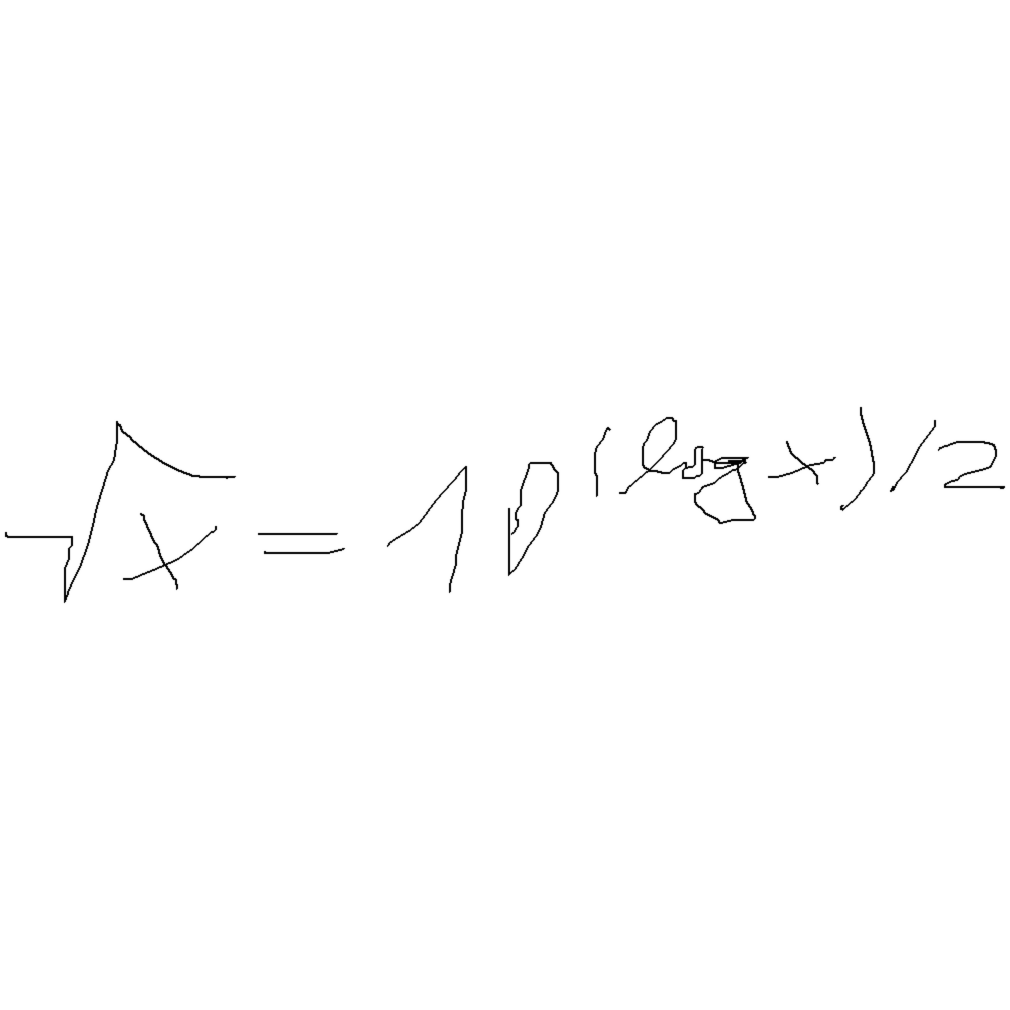 √x = 10^(log x)/2